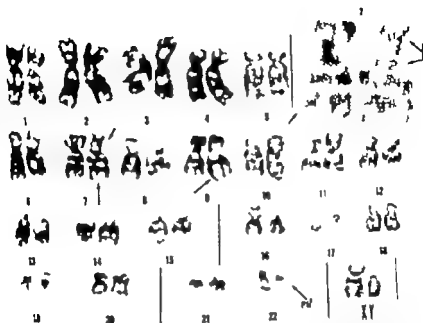 ?
1 2 3 4 5
6 7 8 9 10 11 12
13 14 15 16 17 18
19 20 21 22 XY